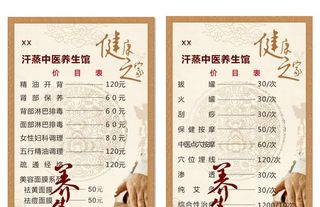 XX
健康之家
汗蒸中医养生馆
价目表
精油开背 120元
肾部保养 60元
背部淋巴排毒 60元
面部淋巴排毒 60元
女性妇科调理 80元
五行精油调理 120元
疏通经络 120元
美容面膜系列
祛黄面膜 50元
祛痘面膜 50元
养生
XX
健康之家
汗蒸中医养生馆
价目表
拔罐 30/次
火罐 30/次
刮痧 30/次
保健按摩 50/次
中医点穴按摩 60/次
穴位埋线 50/次
渗透 30/次
纯艾 30/次
综合性治疗
养生